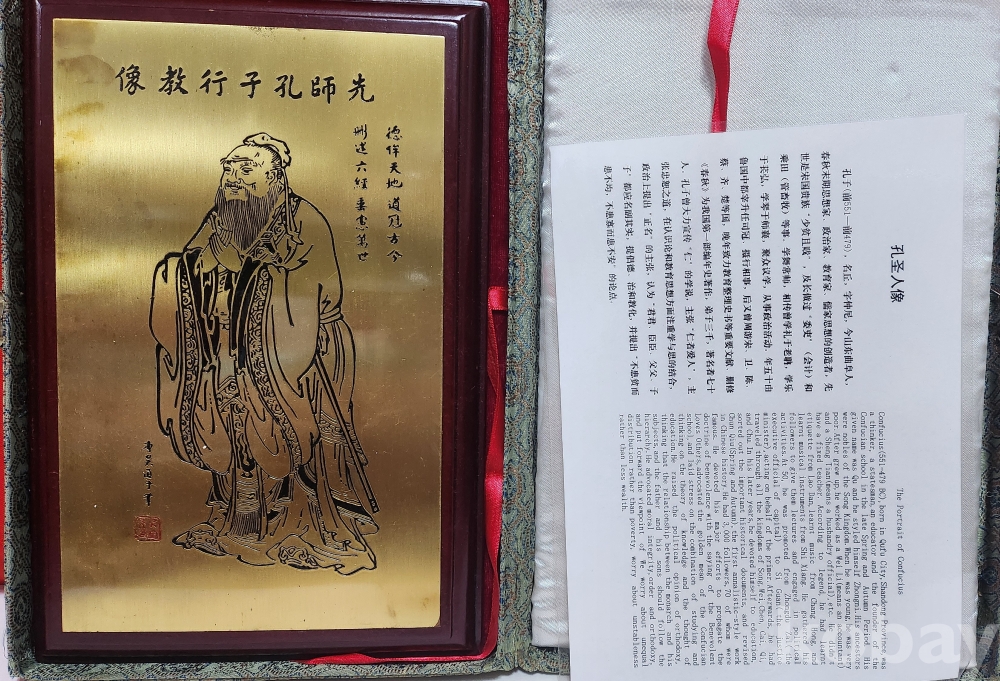 先師孔子行教像
德侔天地道冠古今
刪述六經垂憲萬世
唐吳道子筆
孔圣人像
孔子(前551—前479)，名丘，字仲尼，今山东曲阜人，
春秋末期思想家、政治家、教育家，儒家思想的创造者，先
世是宋国贵族“少贫且贱”，及长做过“委吏”（会计）和
乘田（管畜牧）等事，学无常师，相传曾学礼于老聃，学乐
于苌弘，学琴于师襄，聚众议学，从事政治活动，年五十由
鲁国中都宰升任司冠，摄行相事，后又曾周游宋、卫、陈、
蔡、齐、楚等国，晚年致力教育整理史书等重要文献，删修
《春秋》为我国第一部编年史著作，弟子三千，著名者七十
人。孔子曾大力宣传“仁”的学说，主张“仁者爱人”，主
张忠恕之道，在认识论和教育思想方面注重学与思的结合，
政治上提出“正名”的主张，认为“君君、臣臣、父父、子
子”都应名副其实，提倡德、治和教化，并提出“不患贫而
患不均，不患寡而患不安”的论点。
The Portrait of Confucius
Confucius(551-479 BC), born in Qufu City, Shandong Province was
a thinker, a statesman, an educator and the founder of the
Confucian school in the late Spring and Autumn Period. His
given name was Qu and he styled himself Zhongni. His ancestors
were nobles of the Song Kingdom. When he was young, he was very
poor. After grow up, he worked as a Wei Li(means an accountant)
and a Sheng Tian(means a husbandry official), etc. He didn't
have a fixed teacher. According to legend, he had learnt
etiquette from Lao Dan, learnt music from Chang Hong, and
learnt musical instruments from Shi Xiang. He gathered his
followers to give them lectures and engaged in political
activities. At 50, he was promoted from Zhongdu Zai(the
executive official of capital) to Si Guan(the justice
minister), acting on behalf of the primer. Afterwards, he had
traveled through all the kingdoms of Song, Wei, Chen, Cai, Qi,
and Chu. In his later years, he devoted himself to education,
sorted out the important historical documents, and revised
Chun Qiu(Spring and Autumn), the first annalistic-style work
in Chinese history. He had 3,000 followers, 70 of whom were
famous. He devoted his major efforts to propagate the
doctrine of benevolence with the saying of the Benevolent
Loves Others, advocated the golden mean of the Confucian
school, and laid stress on the combination of studying and
thinking on the theory of knowledge and the thought of
educating. He raised the political opinion of orthodoxy,
thinking that the relationship between the monarch and his
subjects, and the father and his sons should follow the
hierarchy. He advocated moral integrity, order and orthodoxy,
and put forward the viewpoint of We worry about unequal
distribution rather than poverty, worry about unstableness
rather than less wealth.